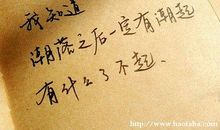 我知道
潮落之后一定有潮起
有什么了不起.
http://www.haotaba.com